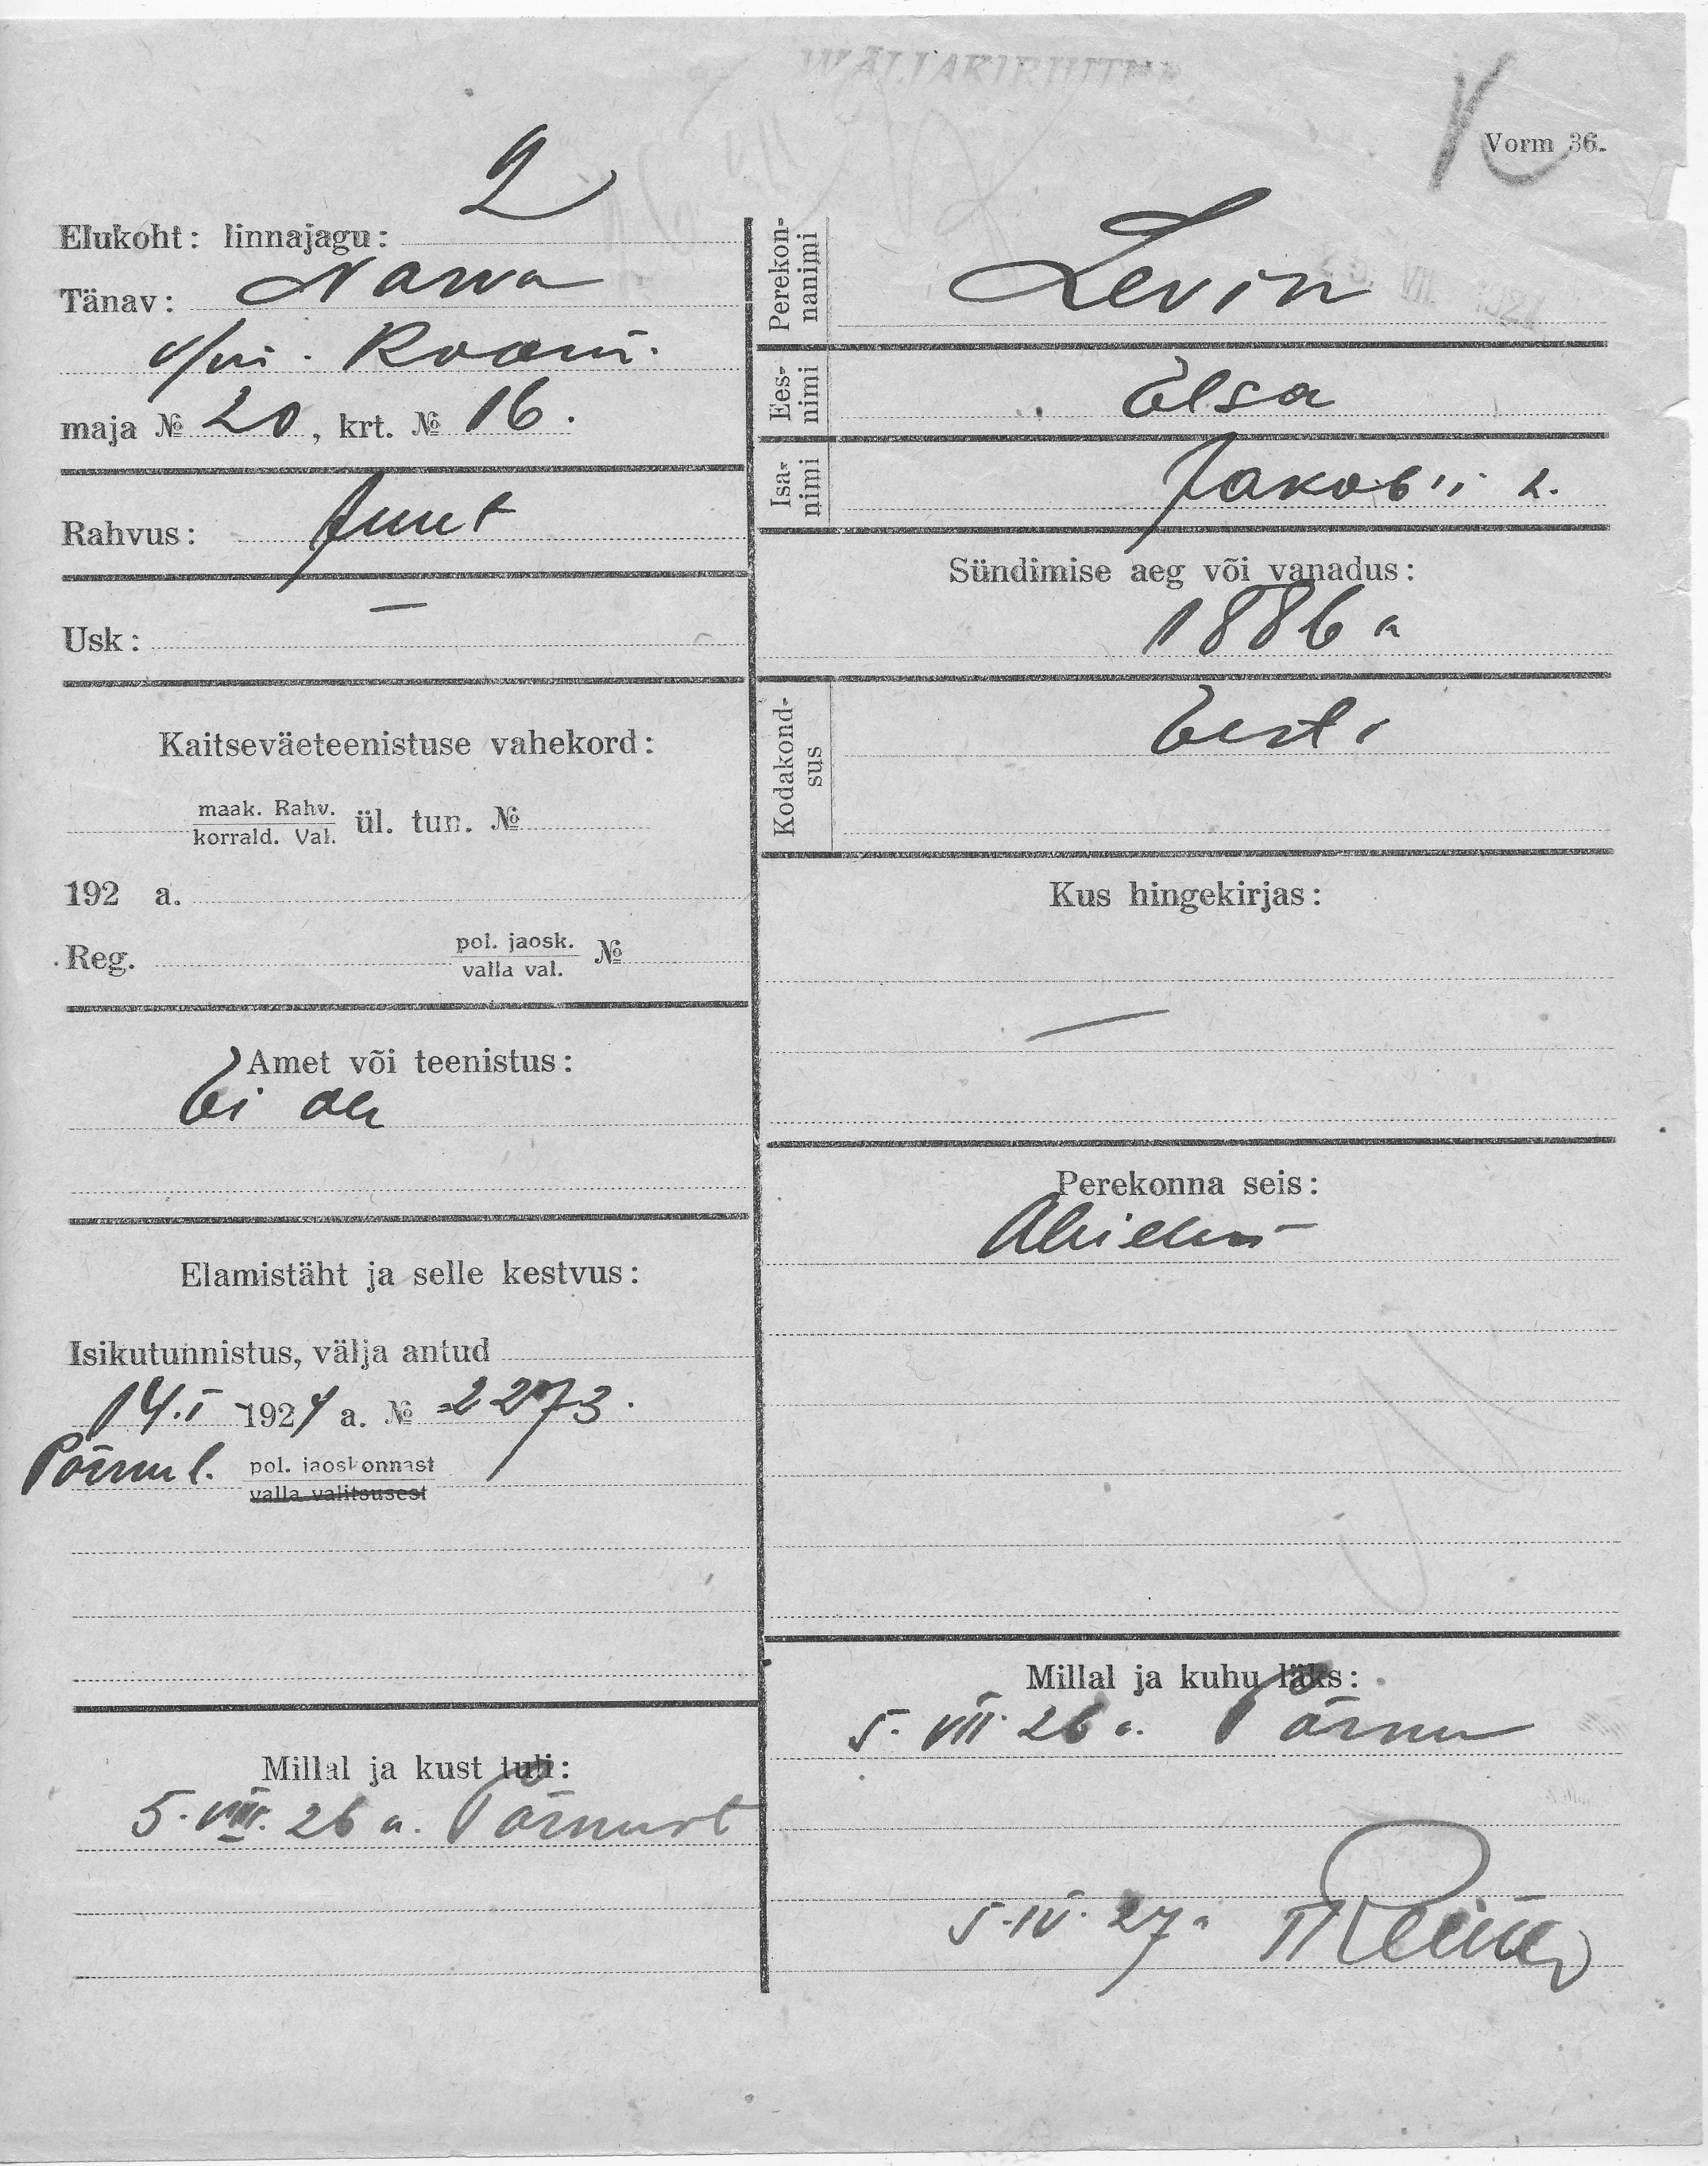 WÄLJAKIRJUTUD
Vorm 36.
Elukoht: linnajagu: 2
Tänav: Narva
maja № 20, krt. № 16.
Rahvus: Juut
Usk: —
Kaitseväeteenistuse vahekord:
maak. Rahv.
korrald. Val. ül. tun. №
192 a.
Reg. pol. jaosk. №
valla val.
Amet või teenistus:
Ei ole
Elamistäht ja selle kestvus:
Isikutunnistus, välja antud
14.I 1924 a. № 2273.
Pärnu l. pol. jaoskonnast
valla valitsusest
Millal ja kust tuli:
5. VIII. 26 a. Pärnust
Perekonnanimi Levin
Eesnimi Elsa
Isanimi Jakobi t.
Sündimise aeg või vanadus:
1886 a
Kodakondsus Eesti
Kus hingekirjas:
—
Perekonna seis:
Abielus
Millal ja kuhu läks:
5. VII. 26 a. Pärnu
5.IV. 27 a